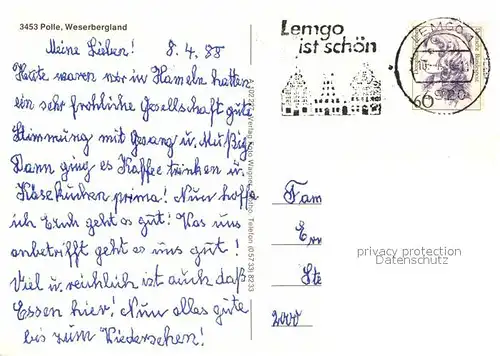 3453 Polle, Weserbergland
Meine Lieben! 8.4.88
Heute waren wir in Hameln hatten
ein sehr fröhliche Gesellschaft gute
Stimmung mit Gesang u. Mußig
Dann ging es Kaffee trinken u.
Käsekuchen prima! Nun hoffe
ich Euch geht es gut! Was uns
anbetrifft geht es uns gut!
Viel u. reichlich ist auch daß
Essen hier! Nun alles gute
bis zum Wiedersehen!
Lemgo
ist schön
LEMGO 1
60
Fam
Ste
2000
privacy protection
Datenschutz